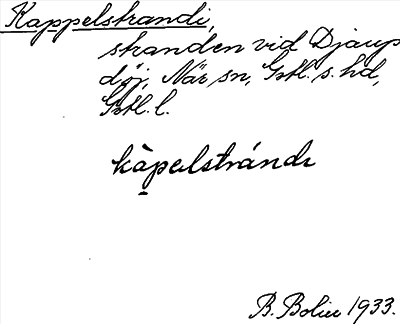 Kappelstrandi,
stranden vid Djaup
dȯi, När sn, Gotl. s. hd,
Gotl. l.
kàpelstrándɩ
B. Bolin 1933.